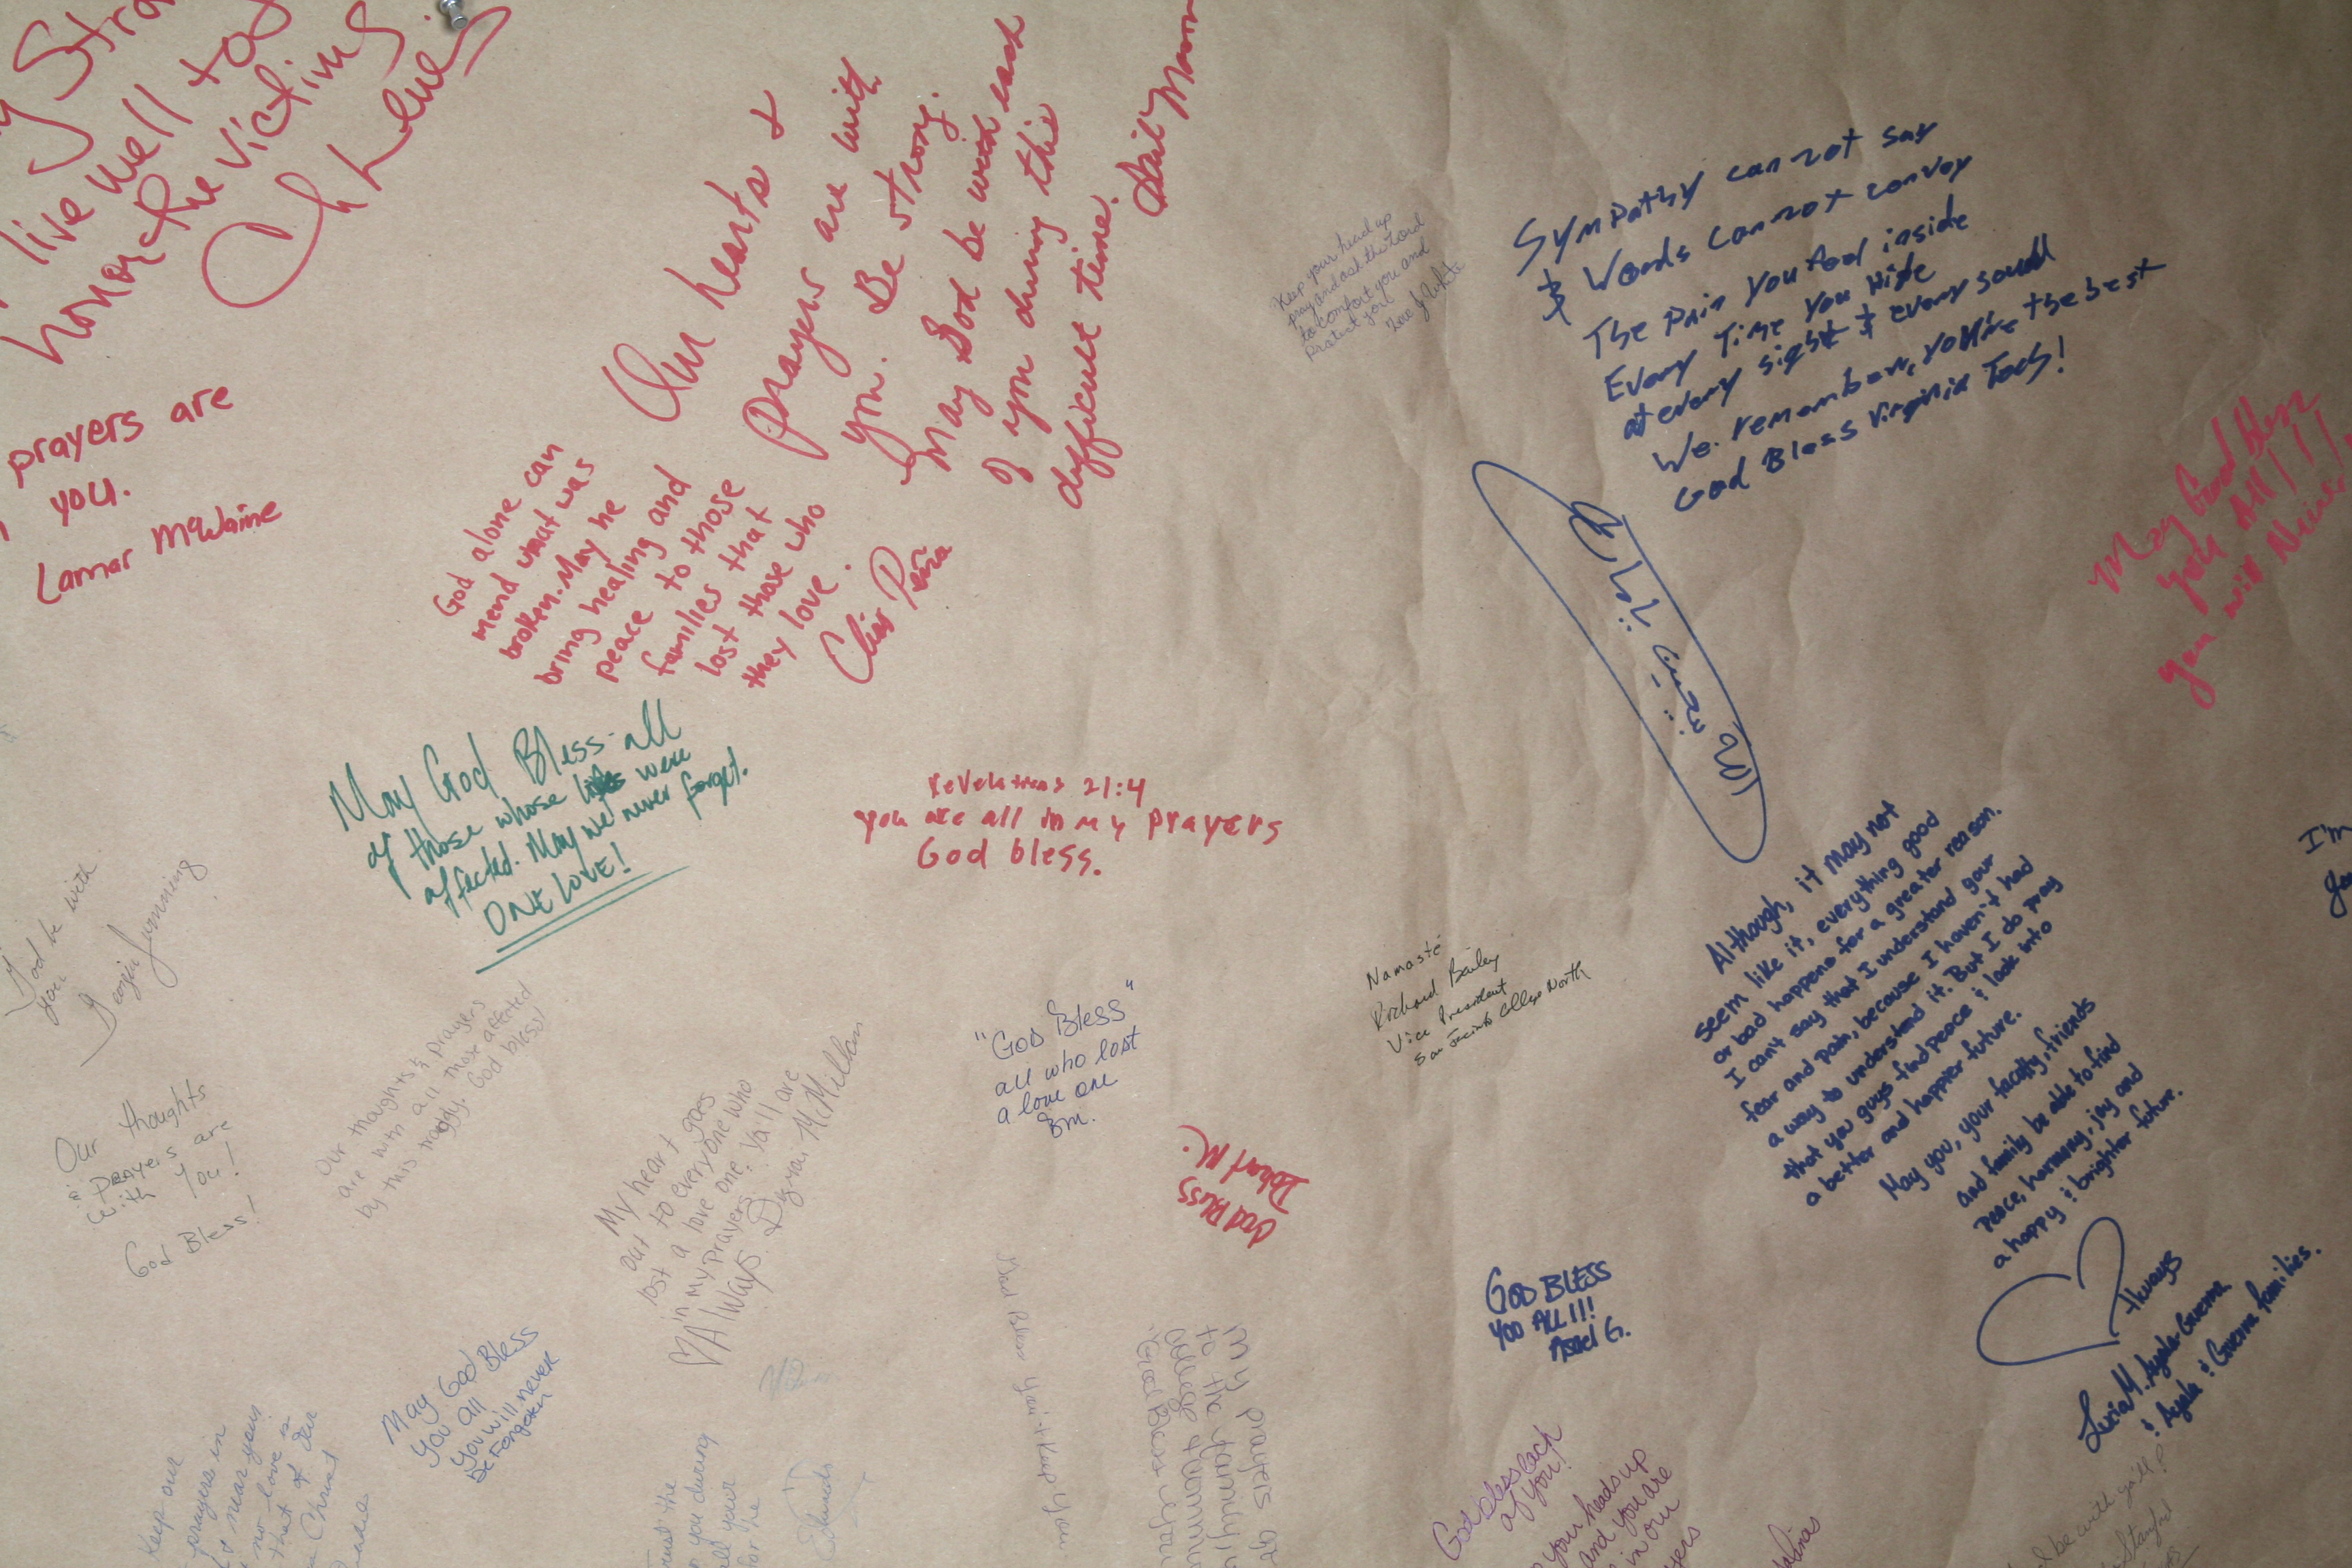 live well to
honor the victims
prayers are
you.
Lamar McWaine
Our hearts &
prayers are with
you. Be strong.
May God be with each
of you during this
difficult time.
God alone can
mend what was
broken. May he
bring healing and
peace to those
families that
lost those who
they love.
Keep your head up
pray and ask the Lord
to comfort you and
Protect you
Sympathy can not say
& Words cannot convey
The pain you feel inside
Every Time You Hide
at every sight & every sound
We remember, you're the best
God Bless Virginia Tech!
May God bless
you All!!!
you will Never
May God Bless all
of those whose lives were
affected. May we never forget.
ONE LOVE!
Revelations 21:4
you are all in my prayers
God bless.
God be with
you
Our thoughts
& prayers are
with you!
God Bless!
Our thoughts & prayers
are with all those affected
by this tragedy. God bless!
My heart goes
out to everyone who
lost a love one. Yall are
in my prayers
Always.
McMillan
"God Bless"
all who lost
a love one
Namaste
Richard Bailey
Vice President
San Jacinto College North
God Bless
Robert M.
Although, it may not
seem like it, everything good
or bad happens for a greater reason.
I can't say that I understand your
fear and pain, because I haven't had
a way to understand it. But I do pray
that you guys find peace & look into
a better and happier future.
May you, your faculty, friends
and family be able to find
peace, harmony, joy and
a happy & brighter future.
Always
Lucia M. Ayala-Guerra
& Ayala & Guerra families.
I'm
GOD BLESS
YOO ALL!!!
May God Bless
you all
you will never
be Forgotten
God Bless you & Keep you
My prayers
to the family
God Bless each
of you!
your heads up
and you are
in our
Keep our
prayers in
near your
no love is
that of Our
Christ
trust the
you during
your
for he
be with ya'll